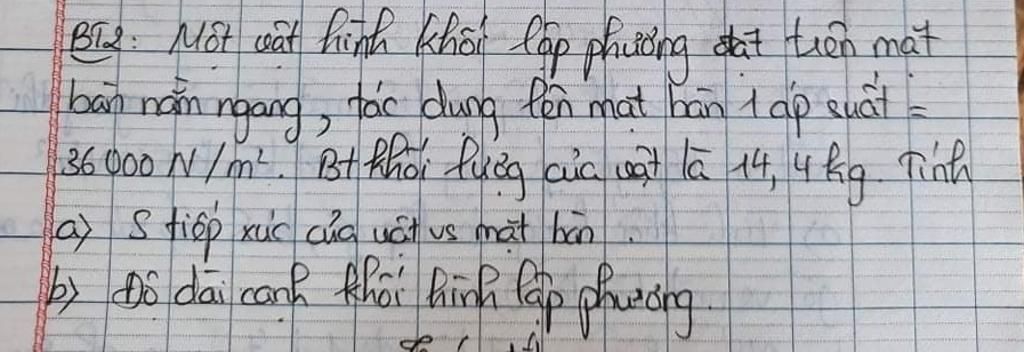 BT2: Một vật hình khối lập phương đặt trên mặt
bàn nằm ngang, tác dụng lên mặt bàn 1 áp suất =
36 000 N/m². Bt khối lượg của vật là 14,4kg. Tính
a) S tiếp xúc của vật vs mặt bàn.
b) Độ dài cạnh khối hình lập phương.